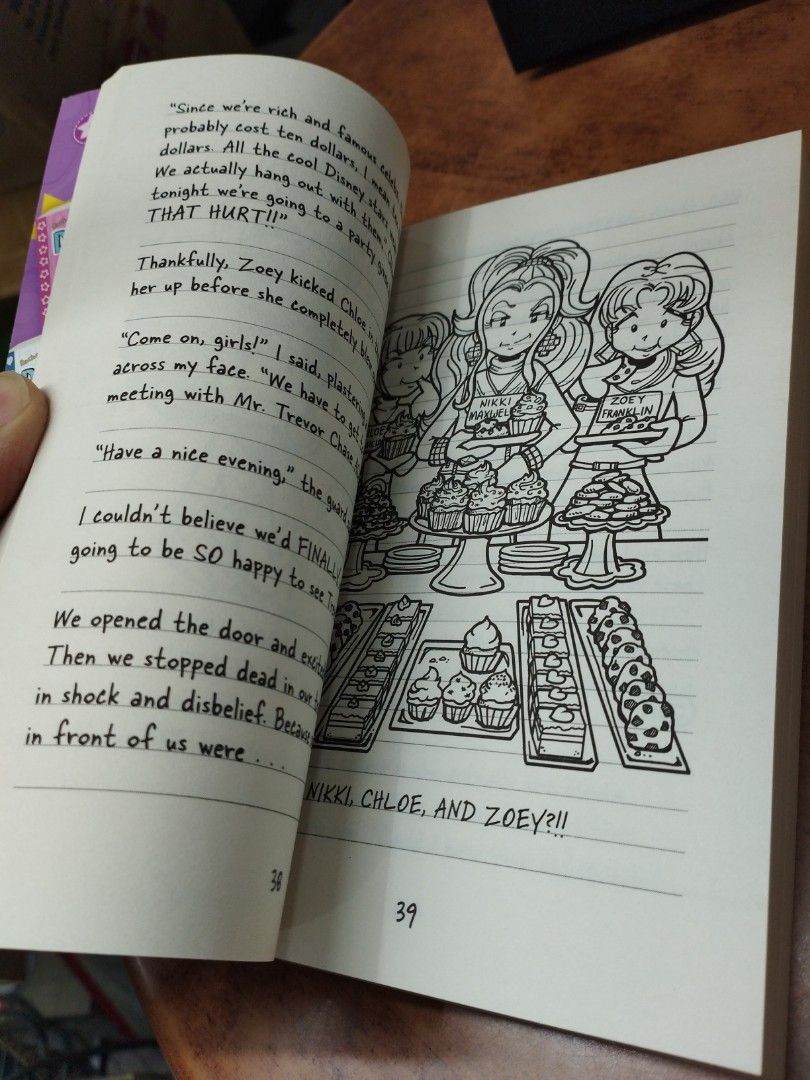 "Since we're rich and famous
probably cost ten dollars, I mean
dollars. All the cool Disney stars
We actually hang out with them."
tonight we're going to a party
THAT HURT!!"
Thankfully, Zoey kicked Chloe in
her up before she completely
"Come on, girls!" I said, plastering
across my face. "We have to get
meeting with Mr. Trevor Chase
"Have a nice evening," the guard
I couldn't believe we'd
going to be SO happy to see
We opened the door and
Then we stopped dead in our
in shock and disbelief. Because
in front of us were . . .
38
NIKKI
MAXWELL
ZOEY
FRANKLIN
NIKKI, CHLOE, AND ZOEY?!!
39